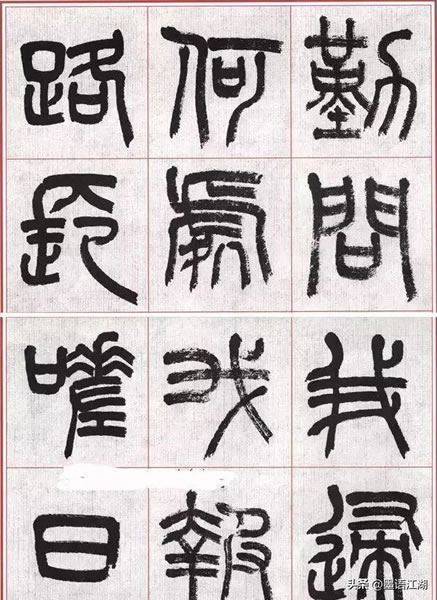 勤問我歸
何處我報
路長嗟日
头条 @墨语江湖